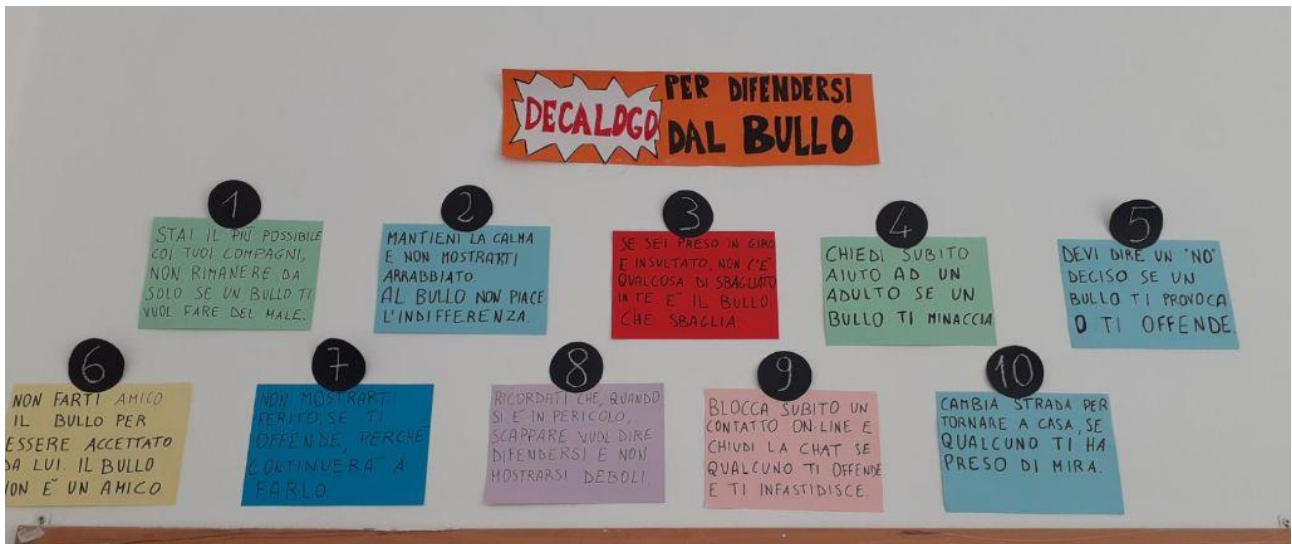 DECALOGO PER DIFENDERSI
DAL BULLO
1
STAI IL PIÙ POSSIBILE
COI TUOI COMPAGNI,
NON RIMANERE DA
SOLO SE UN BULLO TI
VUOL FARE DEL MALE.
2
MANTIENI LA CALMA
E NON MOSTRARTI
ARRABBIATO.
AL BULLO NON PIACE
L'INDIFFERENZA.
3
SE SEI PRESO IN GIRO
E INSULTATO, NON C'È
QUALCOSA DI SBAGLIATO
IN TE È IL BULLO
CHE SBAGLIA.
4
CHIEDI SUBITO
AIUTO AD UN
ADULTO SE UN
BULLO TI MINACCIA
5
DEVI DIRE UN "NO"
DECISO SE UN
BULLO TI PROVOCA
O TI OFFENDE.
6
NON FARTI AMICO
IL BULLO PER
ESSERE ACCETTATO
DA LUI. IL BULLO
NON È UN AMICO
7
NON MOSTRARTI
FERITO, SE TI
OFFENDE, PERCHÉ
CONTINUERÀ A
FARLO.
8
RICORDATI CHE, QUANDO
SI È IN PERICOLO,
SCAPPARE VUOL DIRE
DIFENDERSI E NON
MOSTRARSI DEBOLI.
9
BLOCCA SUBITO UN
CONTATTO ON-LINE E
CHIUDI LA CHAT SE
QUALCUNO TI OFFENDE
E TI INFASTIDISCE.
10
CAMBIA STRADA PER
TORNARE A CASA, SE
QUALCUNO TI HA
PRESO DI MIRA.